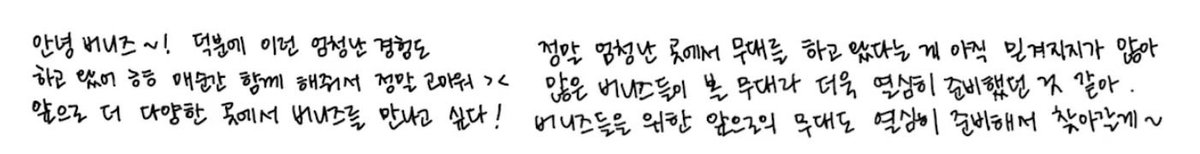 안녕 버니즈~! 덕분에 이런 엄청난 경험도
하고 있어 ㅎㅎ 매순간 함께 해줘서 정말 고마워 ><
앞으로 더 다양한 곳에서 버니즈를 만나고 싶다!
정말 엄청난 곳에서 무대를 하고 왔다는 게 아직 믿겨지지가 않아
많은 버니즈들이 본 무대라 더욱 열심히 준비했던 것 같아.
버니즈들을 위한 앞으로의 무대도 열심히 준비해서 찾아갈게~